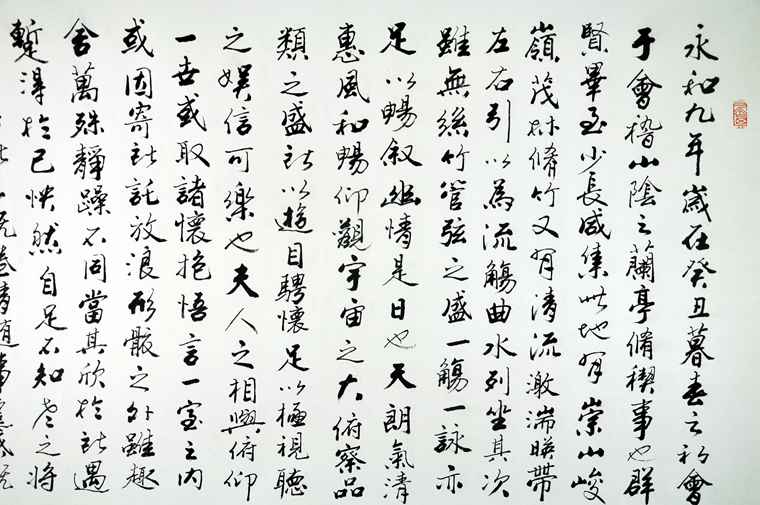 永和九年歲在癸丑暮春之初會
于會稽山陰之蘭亭脩禊事也群
賢畢至少長咸集此地有崇山峻
嶺茂林脩竹又有清流激湍暎帶
左右引以為流觴曲水列坐其次
雖無絲竹管弦之盛一觴一詠亦
足以暢敘幽情是日也天朗氣清
惠風和暢仰觀宇宙之大俯察品
類之盛所以遊目騁懷足以極視聽
之娛信可樂也夫人之相與俯仰
一世或取諸懷抱悟言一室之內
或因寄所託放浪形骸之外雖趣
舍萬殊靜躁不同當其欣於所遇
蹔得於己怏然自足不知老之將
既惓情隨事遷感慨